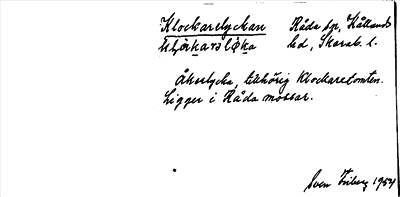 Klockarelyckan Råda sn, Kållands
hd, Skarab. l.
Åkerlycka, tillhörig Klockaretomten.
Ligger i Råda mossar.
Sven 1954